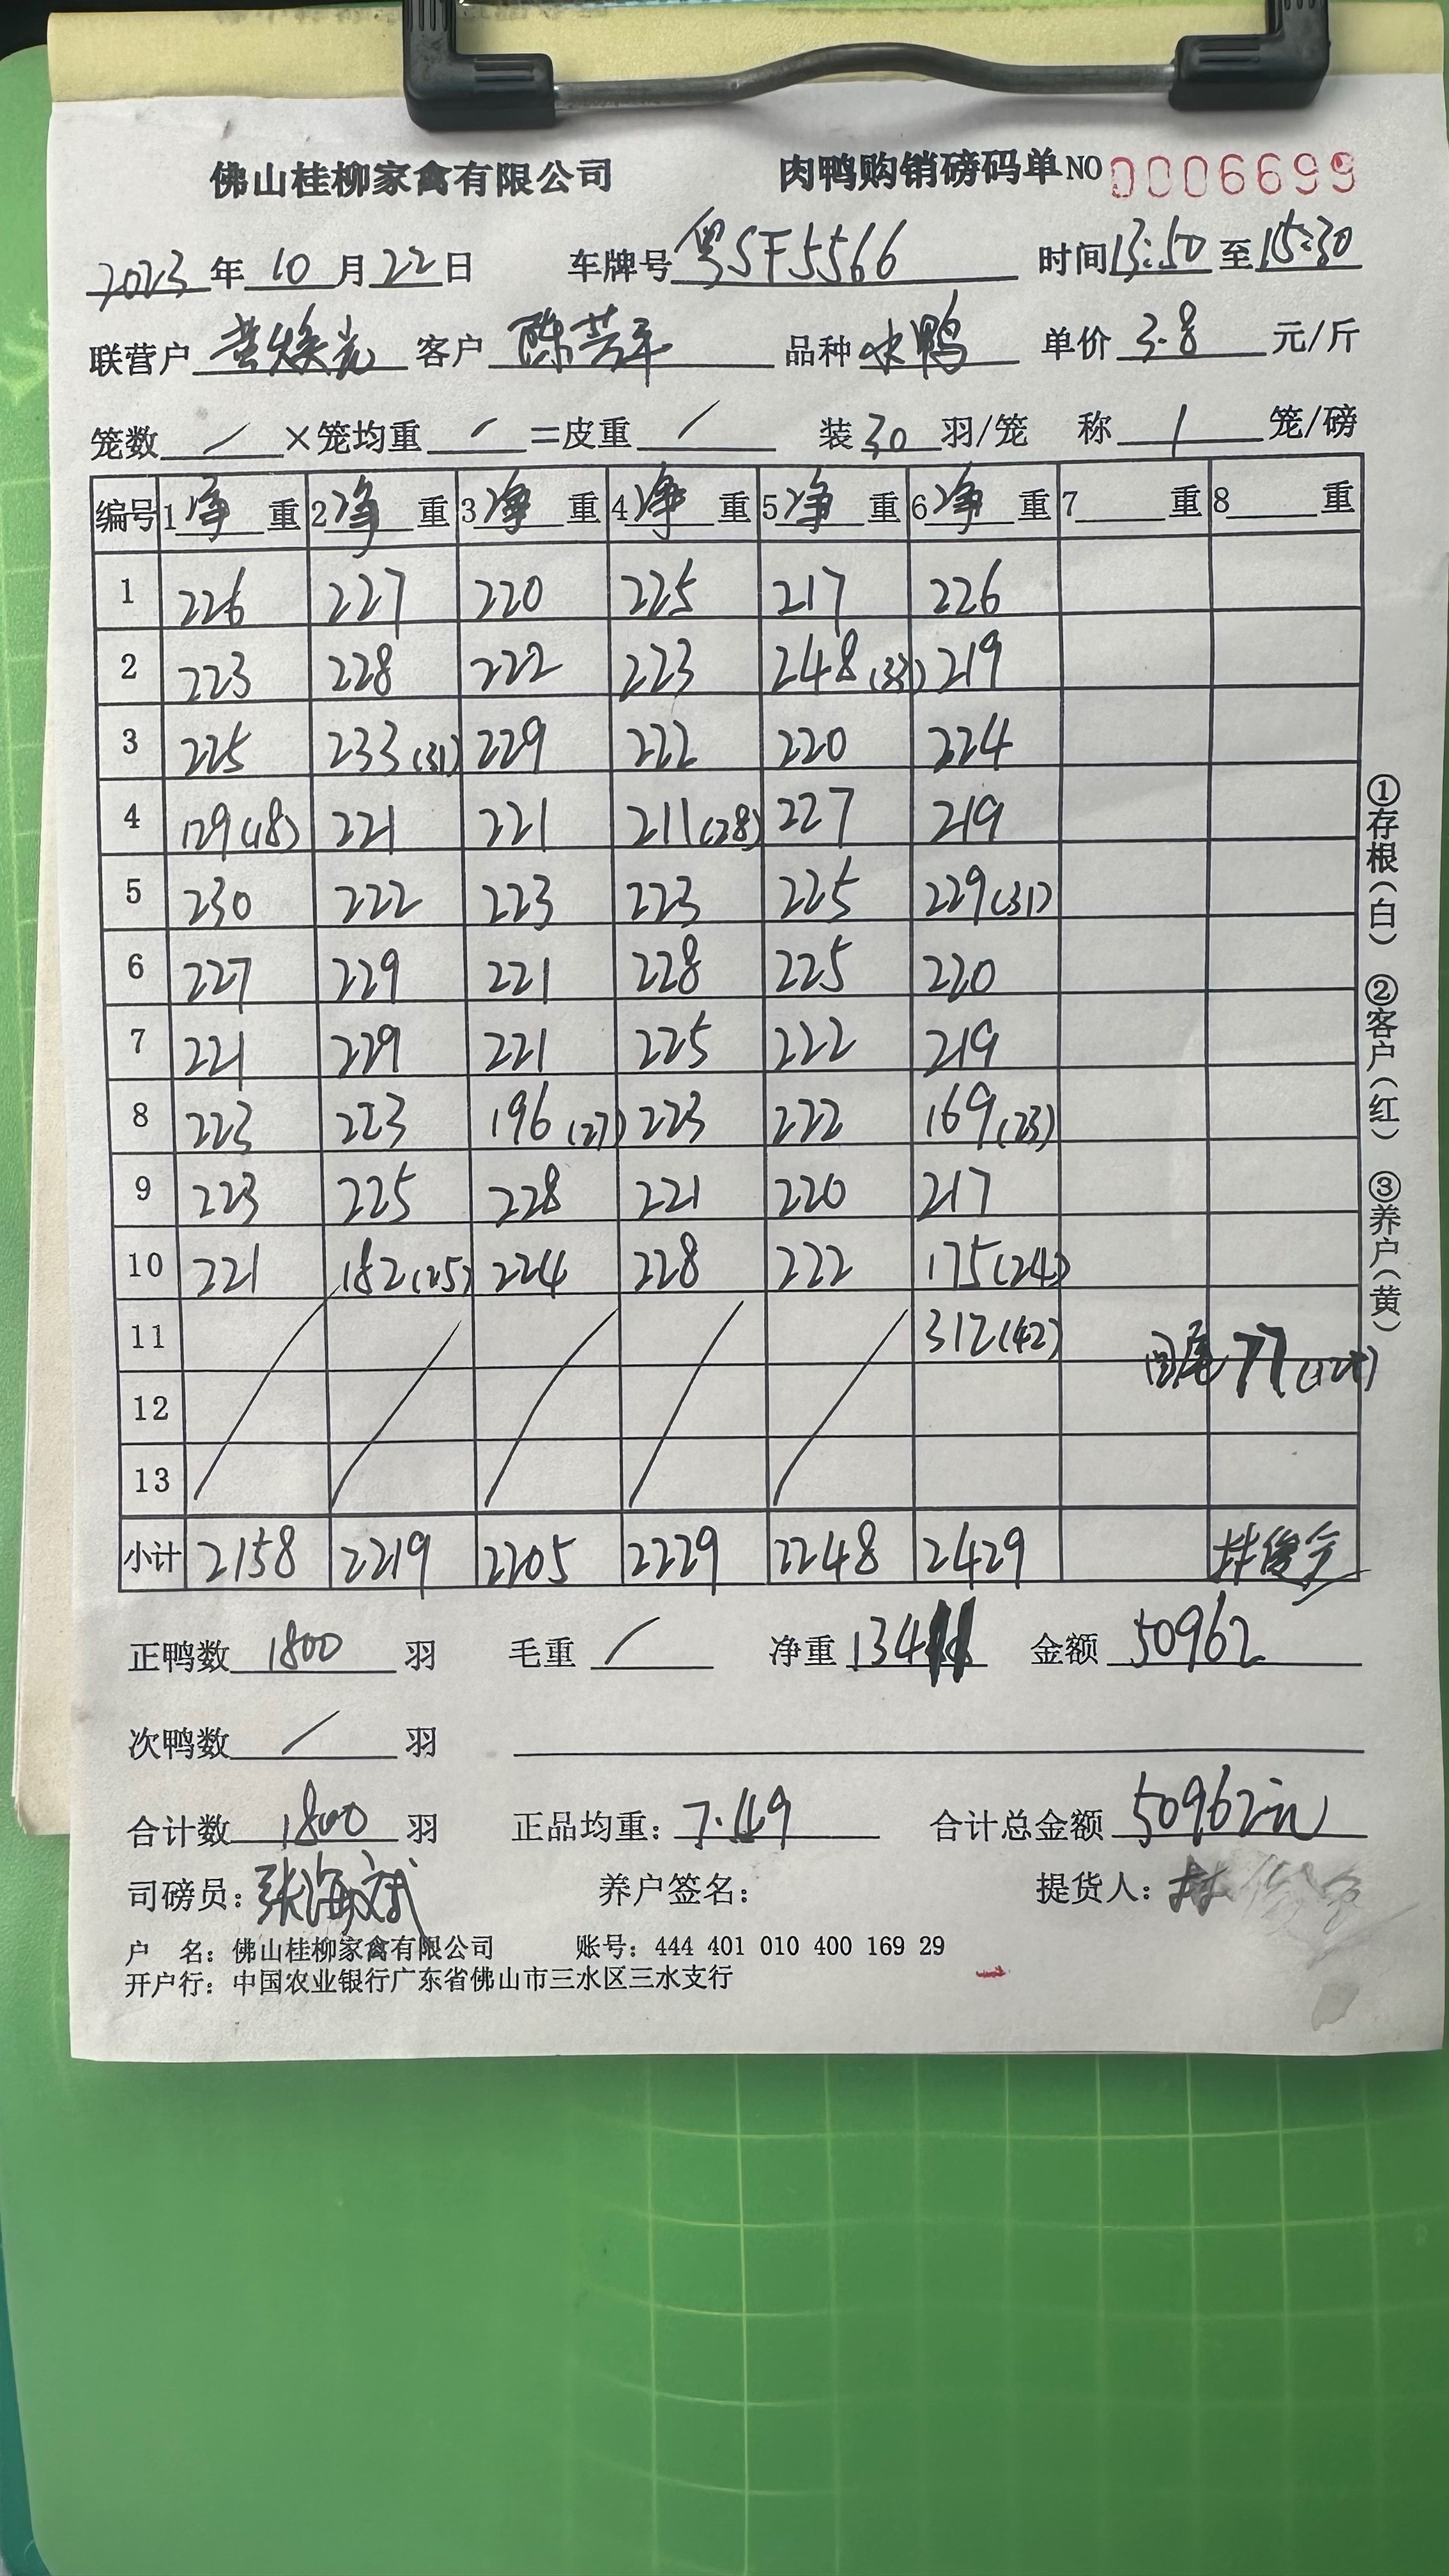 佛山桂柳家禽有限公司 肉鸭购销磅码单 NO 0006699
2023年10月22日 车牌号 粤SF5566 时间 13:50 至 15:30
联营户 黄焕光 客户 陈芳平 品种 水鸭 单价 3.8 元/斤
笼数 / ×笼均重 / =皮重 / 装 30 羽/笼 称 1 笼/磅
编号 1 净 重 2 净 重 3 净 重 4 净 重 5 净 重 6 净 重 7 重 8 重
1 226 227 220 225 217 226
2 223 228 222 223 248(33) 219
3 225 233(31) 229 222 220 224
4 129(18) 221 221 211(28) 227 219
5 230 222 223 223 225 229(31)
6 227 229 221 228 225 220
7 221 229 221 225 222 219
8 223 223 196(27) 223 222 169(23)
9 223 225 228 221 220 217
10 221 182(25) 224 228 222 175(24)
11 312(42) 77
12
13
小计 2158 2219 2205 2229 2248 2429 林俊
正鸭数 1800 羽 毛重 / 净重 134 金额 50962
次鸭数 / 羽
合计数 1800 羽 正品均重: 7.49 合计总金额 50962元
司磅员: 张海斌 养户签名: 提货人: 林俊
户 名: 佛山桂柳家禽有限公司 账号: 444 401 010 400 169 29
开户行: 中国农业银行广东省佛山市三水区三水支行
①存根(白) ②客户(红) ③养户(黄)